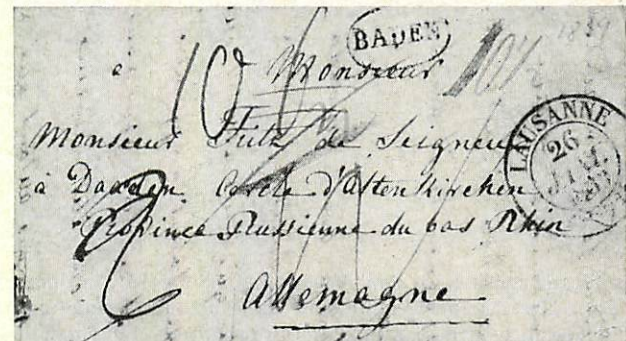 BADEN
à Monsieur
Monsieur Fritz de Seigneu
à Daaden Cercle d'Altenkirchen
Province Prussienne du bas Rhin
Allemagne
LAUSANNE
26
JANV.